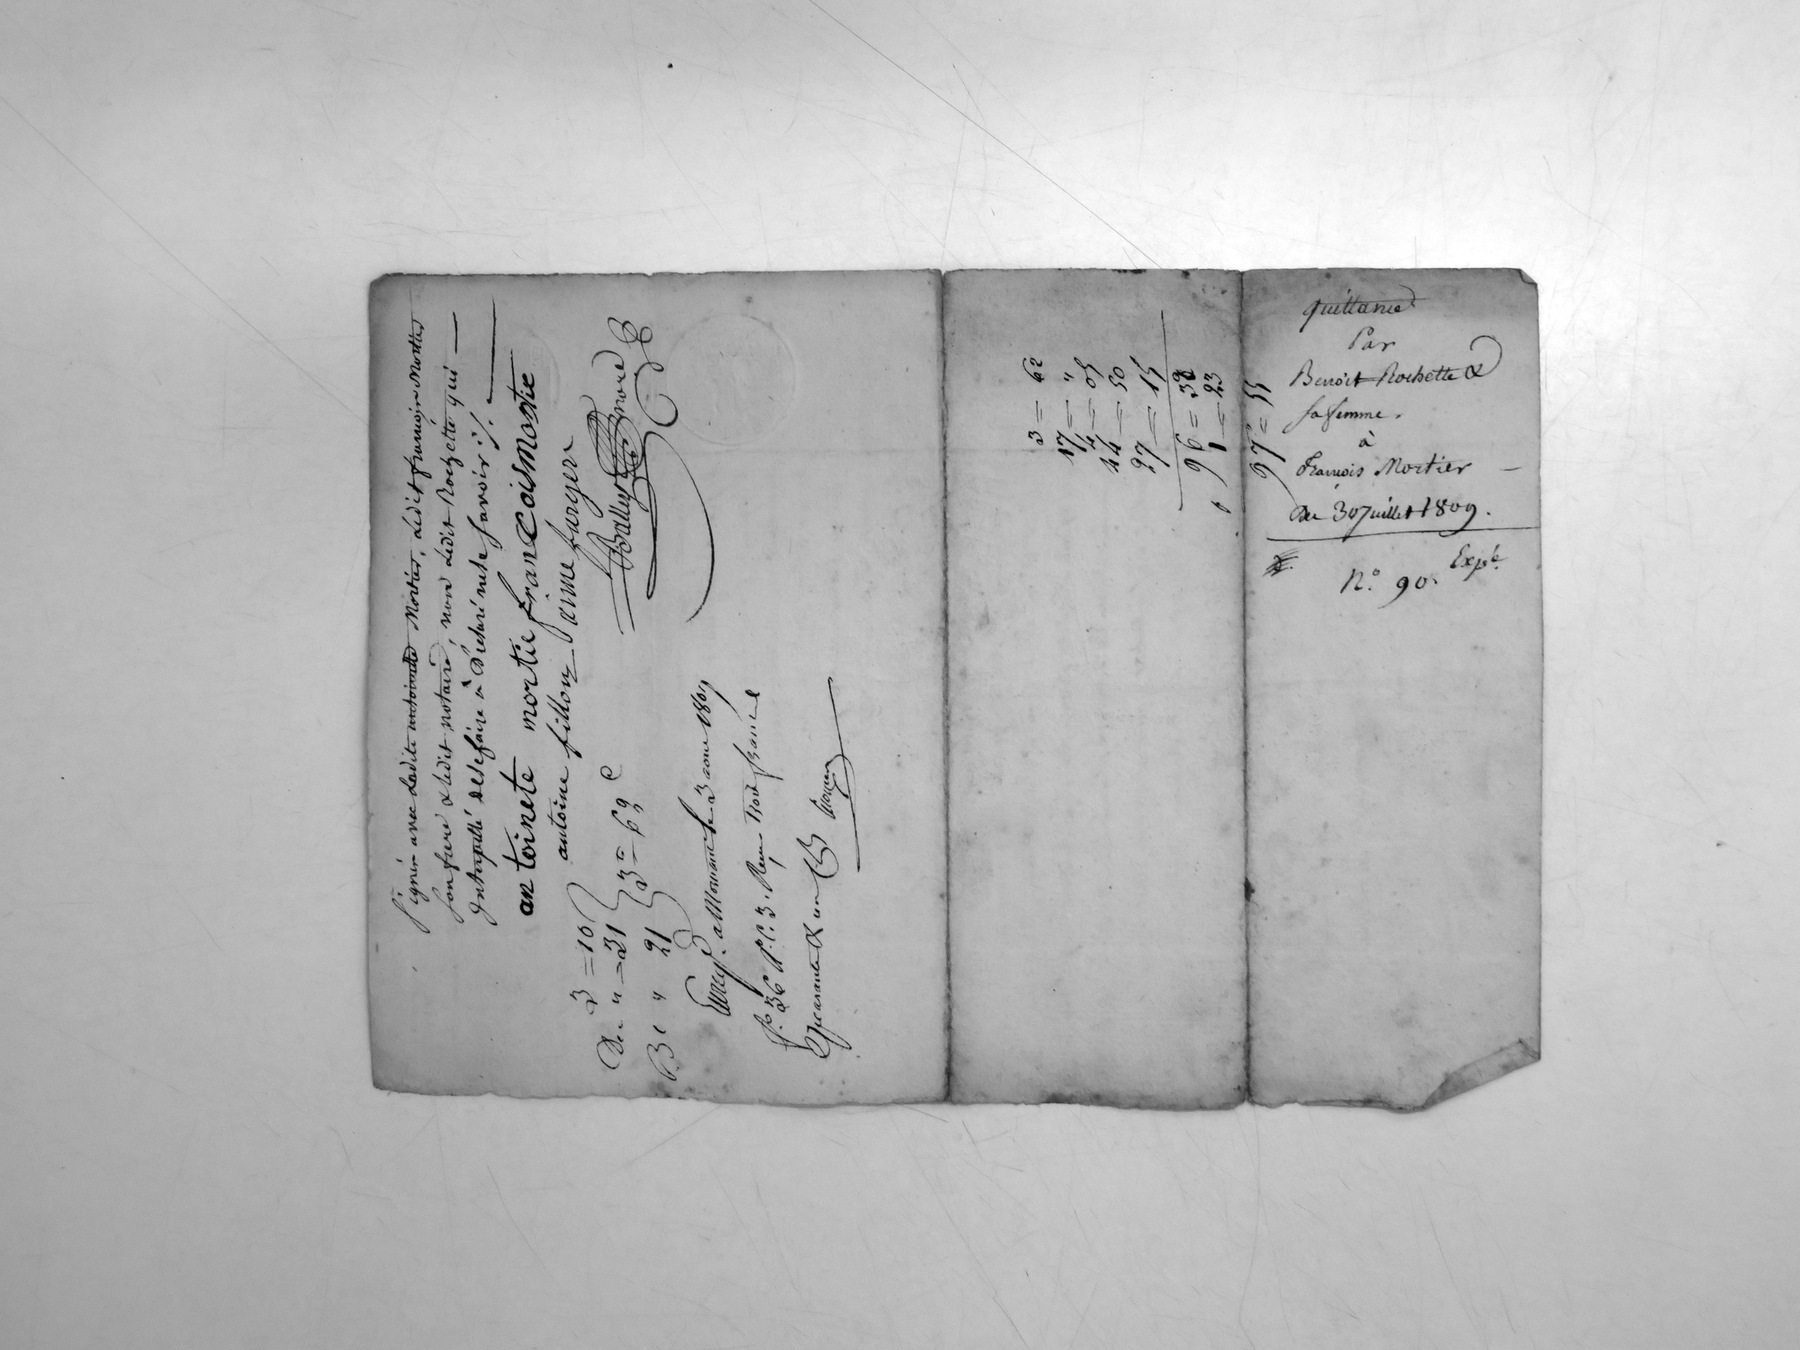 Signés avec Ladite antoinette Mortier, Ledit françois Mortier
son frere & Ledit notaire, non Ledit Rochette qui
Interpellé de le faire a Declaré ne le Savoir ./.
antoinete mortié francois Mortie
antoine fillon
aimé farger
Ballup nore
De 3 = 10
" = 31
Be " 21
3 F = 69 C
Enreg. a le 3 aout 1809
f.o 36 R.o C. 3. Reçu Trois francs
& un
3 = 62
17 = "
4 = 05
44 = 50
27 = 15
96 = 32
1 = 23
97 = 55
quittance
Par
Benoit Rochette &
sa femme.
à
François Mortier
Du 30 Juillet 1809.
Exp.é
N.o 90.